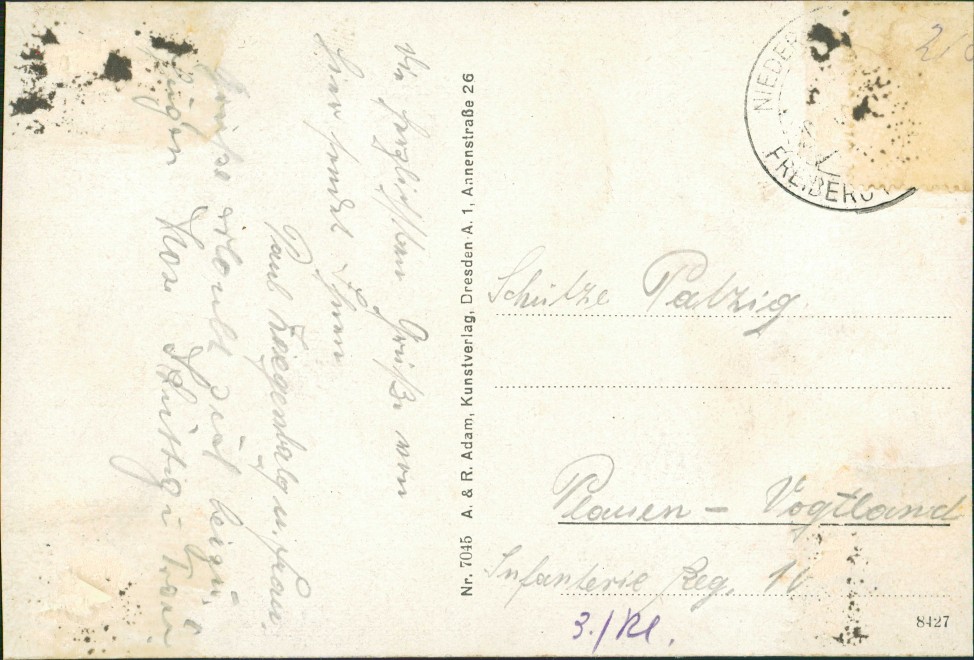 Die herzlichsten Grüße von
hier sendet Ihnen
Paul Ziegenbalg u. Frau.
Grüße erlaubt sich beizu
fügen Kos
Nr. 7045 A. & R. Adam, Kunstverlag, Dresden-A. 1, Annenstraße 26
NIEDER
FREIBERG
Schütze Patzig.
Plauen – Vogtland
Infanterie Reg. 10
3./Kl.
8427